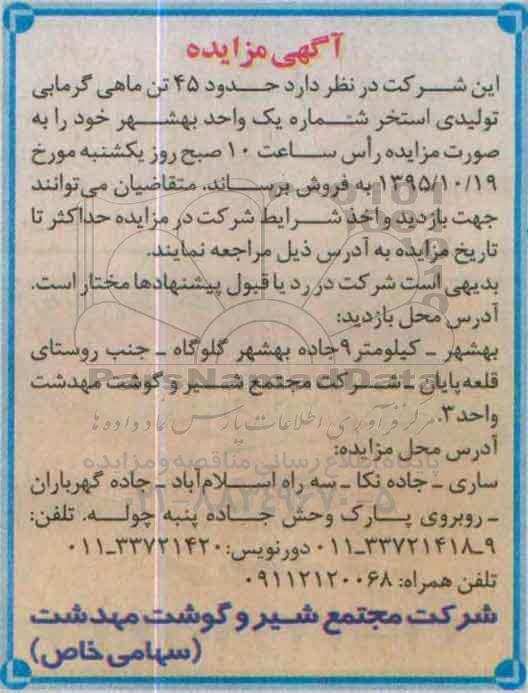 آگهی مزایده
این شرکت در نظر دارد حدود ۴۵ تن ماهی گرمابی
تولیدی استخر شماره یک واحد بهشهر خود را به
صورت مزایده رأس ساعت ۱۰ صبح روز یکشنبه مورخ
۱۳۹۵/۱۰/۱۹ به فروش برساند. متقاضیان می‌توانند
جهت بازدید و اخذ شرایط شرکت در مزایده حداکثر تا
تاریخ مزایده به آدرس ذیل مراجعه نمایند.
بدیهی است شرکت در رد یا قبول پیشنهادها مختار است.
آدرس محل بازدید:
بهشهر ـ کیلومتر ۹ جاده بهشهر گلوگاه ـ جنب روستای
قلعه‌پایان ـ شرکت مجتمع شیر و گوشت مهدشت
واحد ۳.
ParsNamadData
مرکز فرآوری اطلاعات پارس نماد داده ها
آدرس محل مزایده:
پایگاه اطلاع رسانی مناقصه و مزایده
ساری ـ جاده نکا ـ سه راه اسلام‌آباد ـ جاده گهرباران
ـ روبروی پارک وحش جاده پنبه چوله. تلفن:
۰۲۱-۸۸۳۴۹۶۷۰-۵
۹ـ۰۱۱ـ۳۳۷۲۱۴۱۸ دورنویس: ۰۱۱ـ۳۳۷۲۱۴۲۰
تلفن همراه: ۰۹۱۱۲۱۲۰۰۶۸
شرکت مجتمع شیر و گوشت مهدشت
(سهامی خاص)